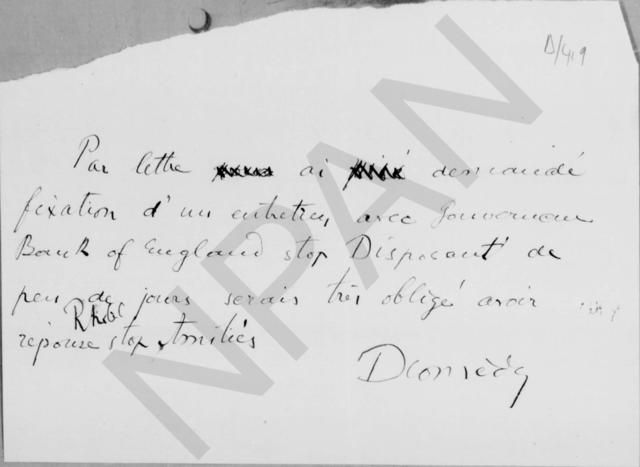 D/419
Par lettre ai demandé
fixation d'un entretien avec Gouverneur
Bank of England stop Disposant de
peu de jours serais très obligé avoir
réponse stop Amitiés
NPAN